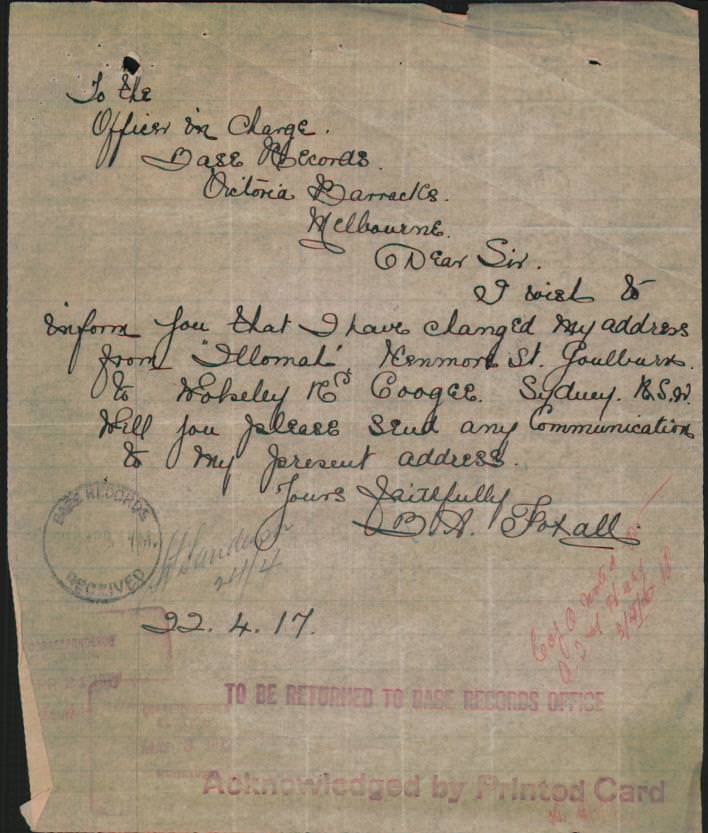 To the
Officer in Charge.
Base Records.
Victoria Barracks.
Melbourne.
Dear Sir.
I wish to
inform you that I have changed my address
from "Illomah" Kenmore St. Goulburn.
to Wolseley Rd Coogee. Sydney. N.S.W.
Will you please send any Communication
to my present address.
Yours faithfully
B A. Foxall.
BASE RECORDS
RECEIVED
24/4
22.4.17.
TO BE RETURNED TO BASE RECORDS OFFICE
Acknowledged by Printed Card